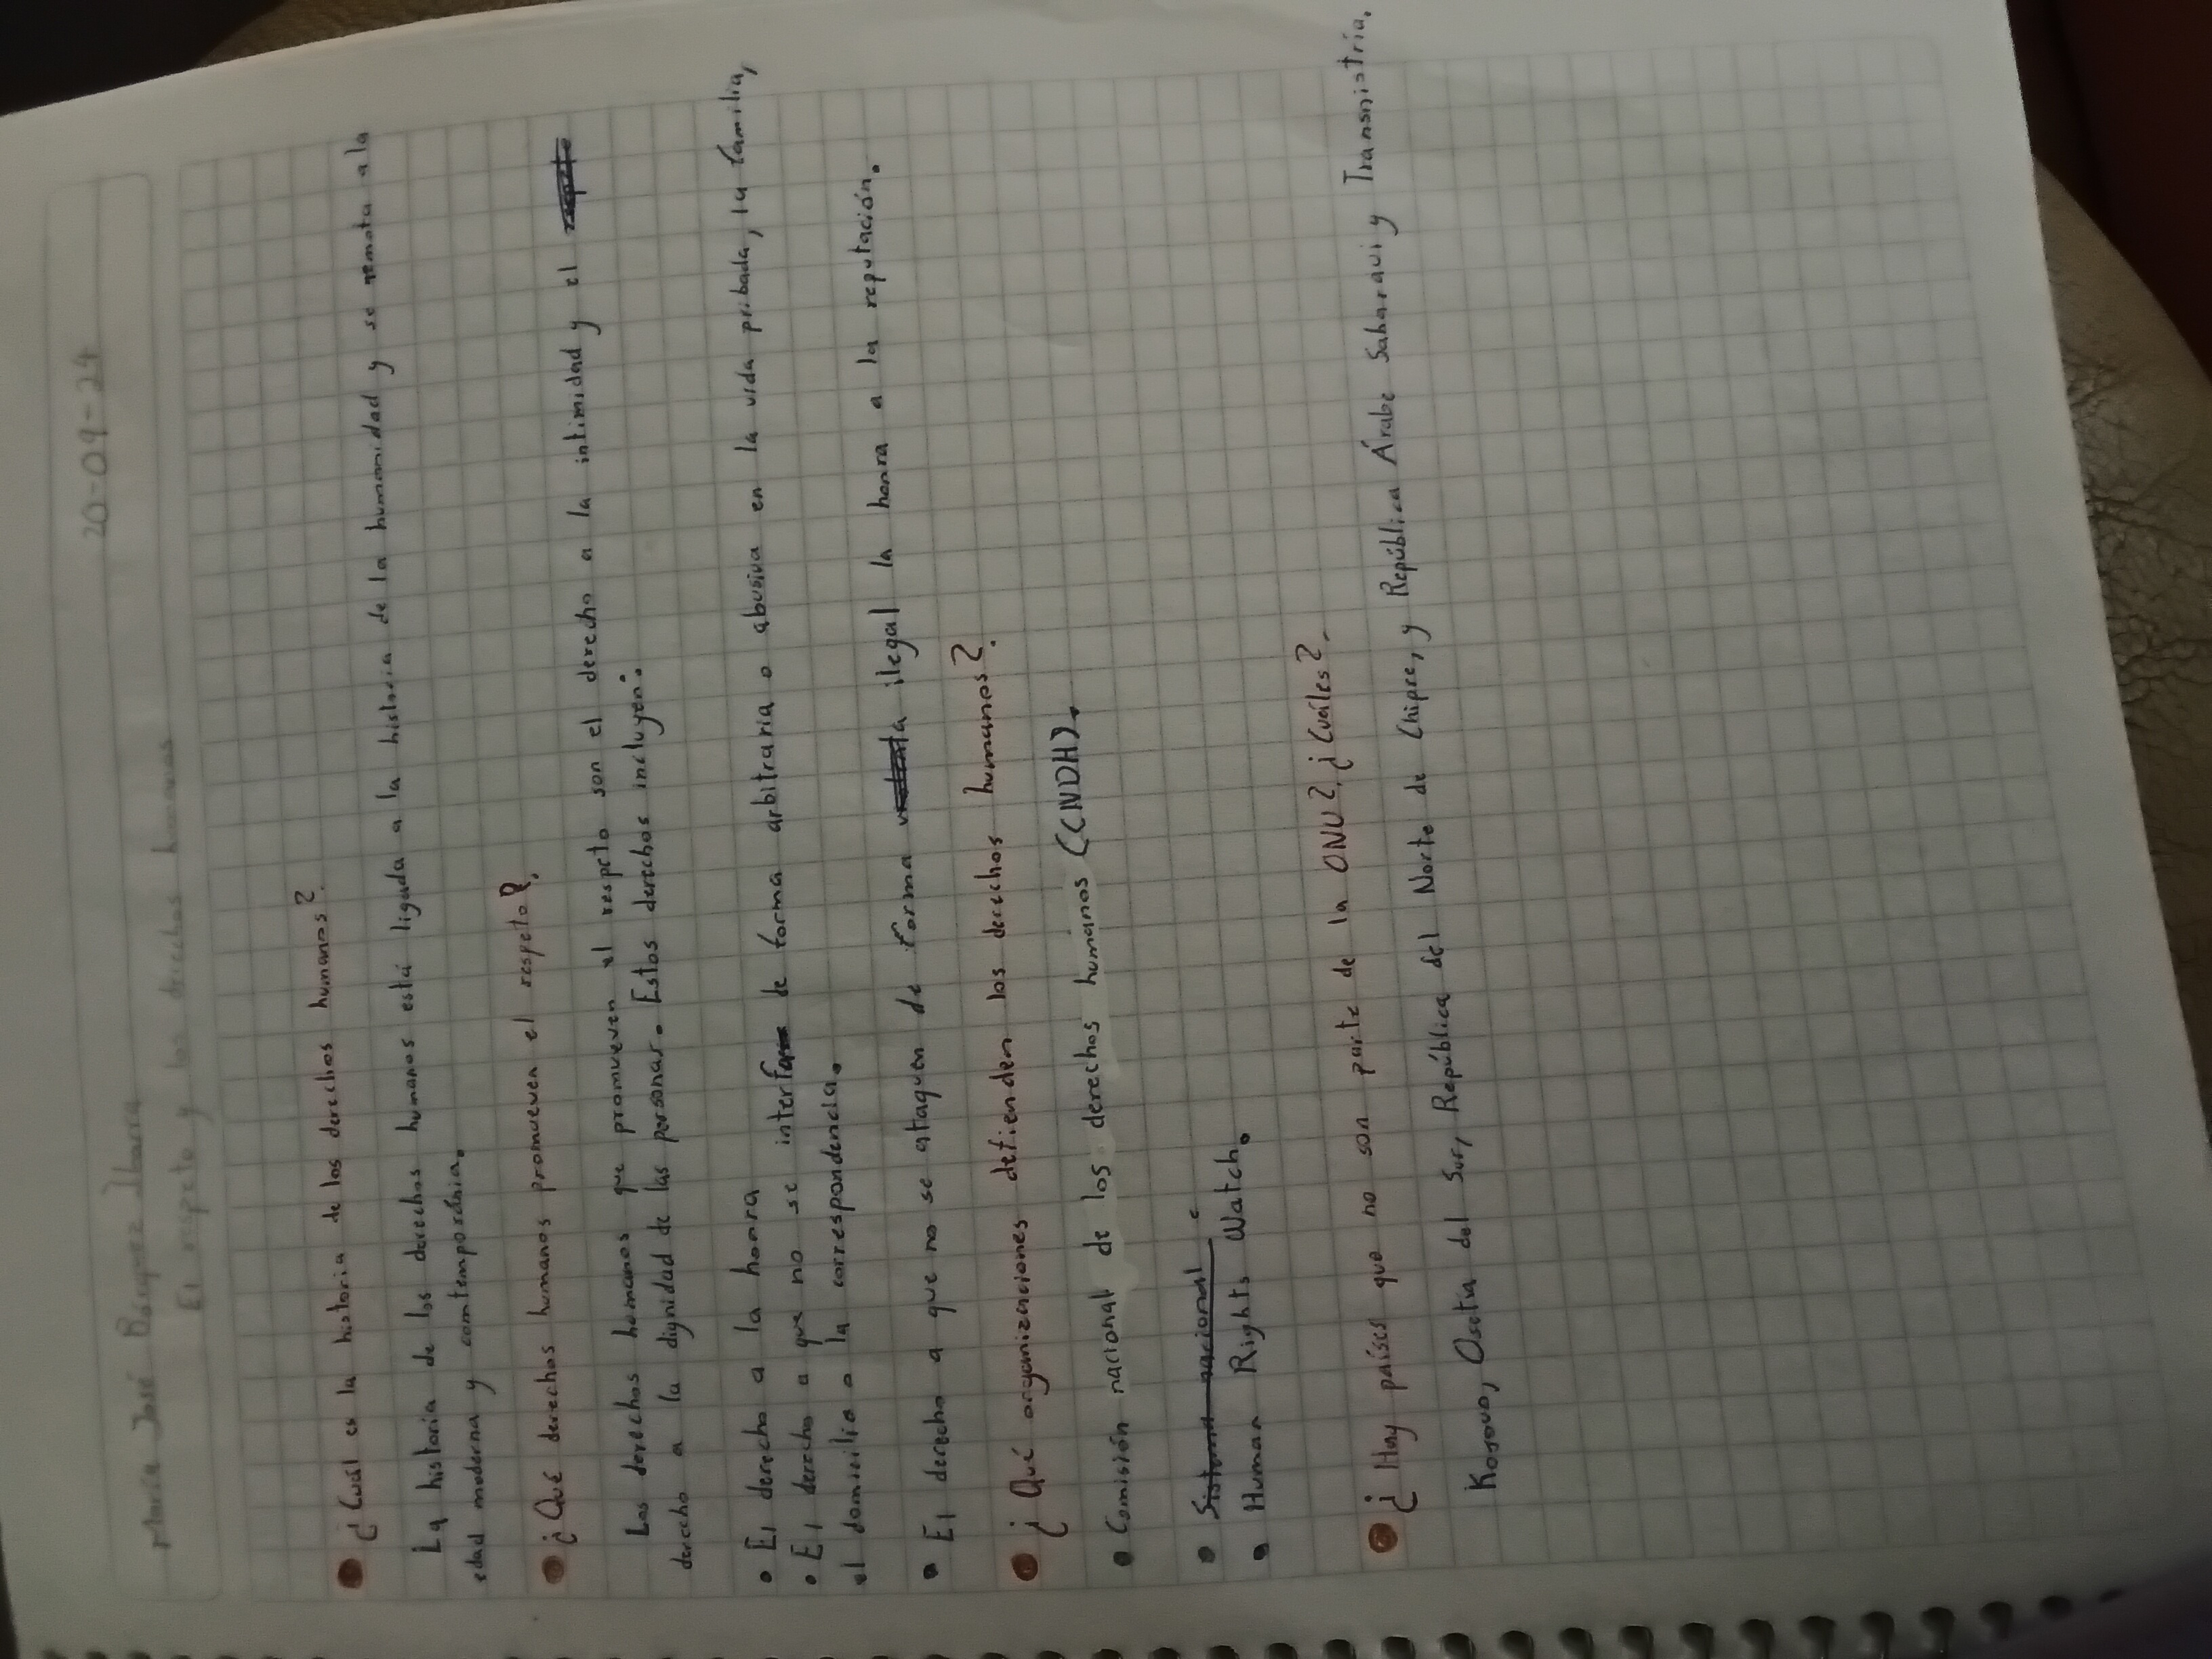 María José Bárquez Ibarra 20-09-24
El respeto y los derechos humanos
¿Cuál es la historia de los derechos humanos?
La historia de los derechos humanos está ligada a la historia de la humanidad y se remota a la
edad moderna y comtemporánia.
¿Qué derechos humanos promueven el respeto?
Los derechos humanos que promueven el respeto son el derecho a la intimidad y el
derecho a la dignidad de las personas. Estos derechos incluyen:
• El derecho a la honra
• El derecho a que no se interfa de forma arbitraria o abusiva en la vida pribada, la familia,
el domicilio o la correspondencia.
• El derecho a que no se ataquen de forma ilegal la honra a la reputación.
¿Qué organizaciones defienden los derechos humanos?
• Comisión nacional de los derechos humanos (CNDH).
• Sistema nacional
• Human Rights Watch.
¿Hay países que no son parte de la ONU? ¿Cuáles?
Kosovo, Osetia del Sur, República del Norte de Chipre, y República Árabe Saharaui y Transnistria.